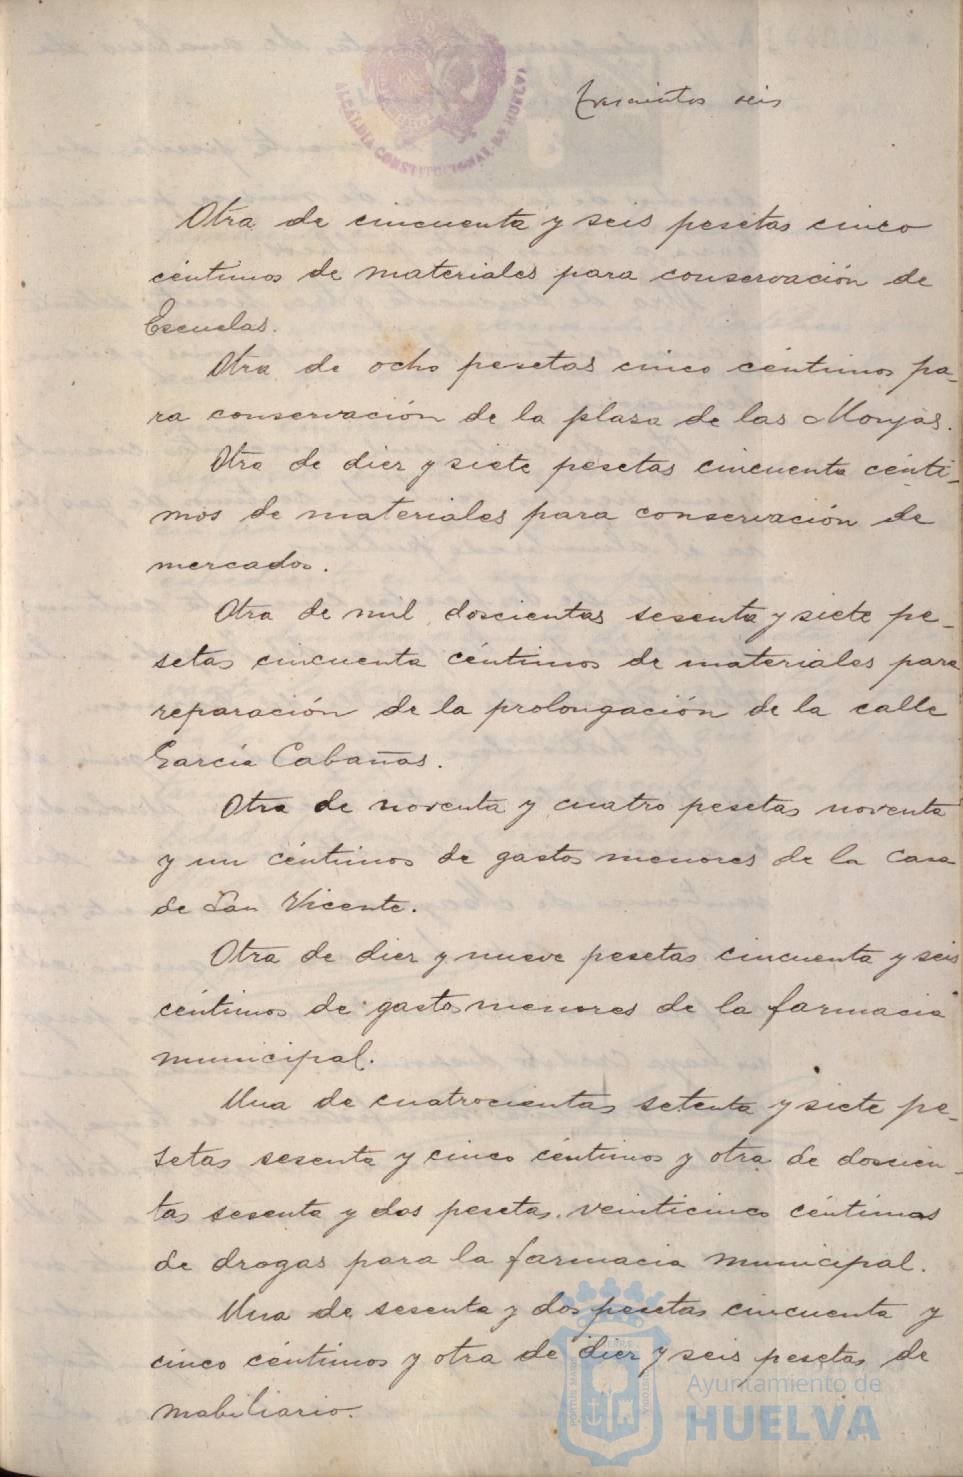 ALCALDIA CONSTITUCIONAL DE HUELVA
trescientos seis
Otra de cincuenta y seis pesetas cinco
céntimos de materiales para conservación de
Escuelas.
Otra de ocho pesetas cinco céntimos pa-
ra conservación de la plasa de las Monjas.
Otra de diez y siete pesetas cincuenta cénti-
mos de materiales para conservación de
mercados.
Otra de mil doscientas sesenta y siete pe-
setas cincuenta céntimos de materiales para
reparación de la prolongación de la calle
García Cabañas.
Otra de noventa y cuatro pesetas noventa
y un céntimos de gastos menores de la Casa
de San Vicente.
Otra de diez y nueve pesetas cincuenta y seis
céntimos de gastos menores de la farmacia
municipal.
Una de cuatrocientas setenta y siete pe-
setas sesenta y cinco céntimos y otra de doscien-
tas sesenta y dos pesetas veinticinco céntimos
de drogas para la farmacia municipal.
Una de sesenta y dos pesetas cincuenta y
cinco céntimos y otra de diez y seis pesetas de
mobiliario.
Ayuntamiento de
HUELVA